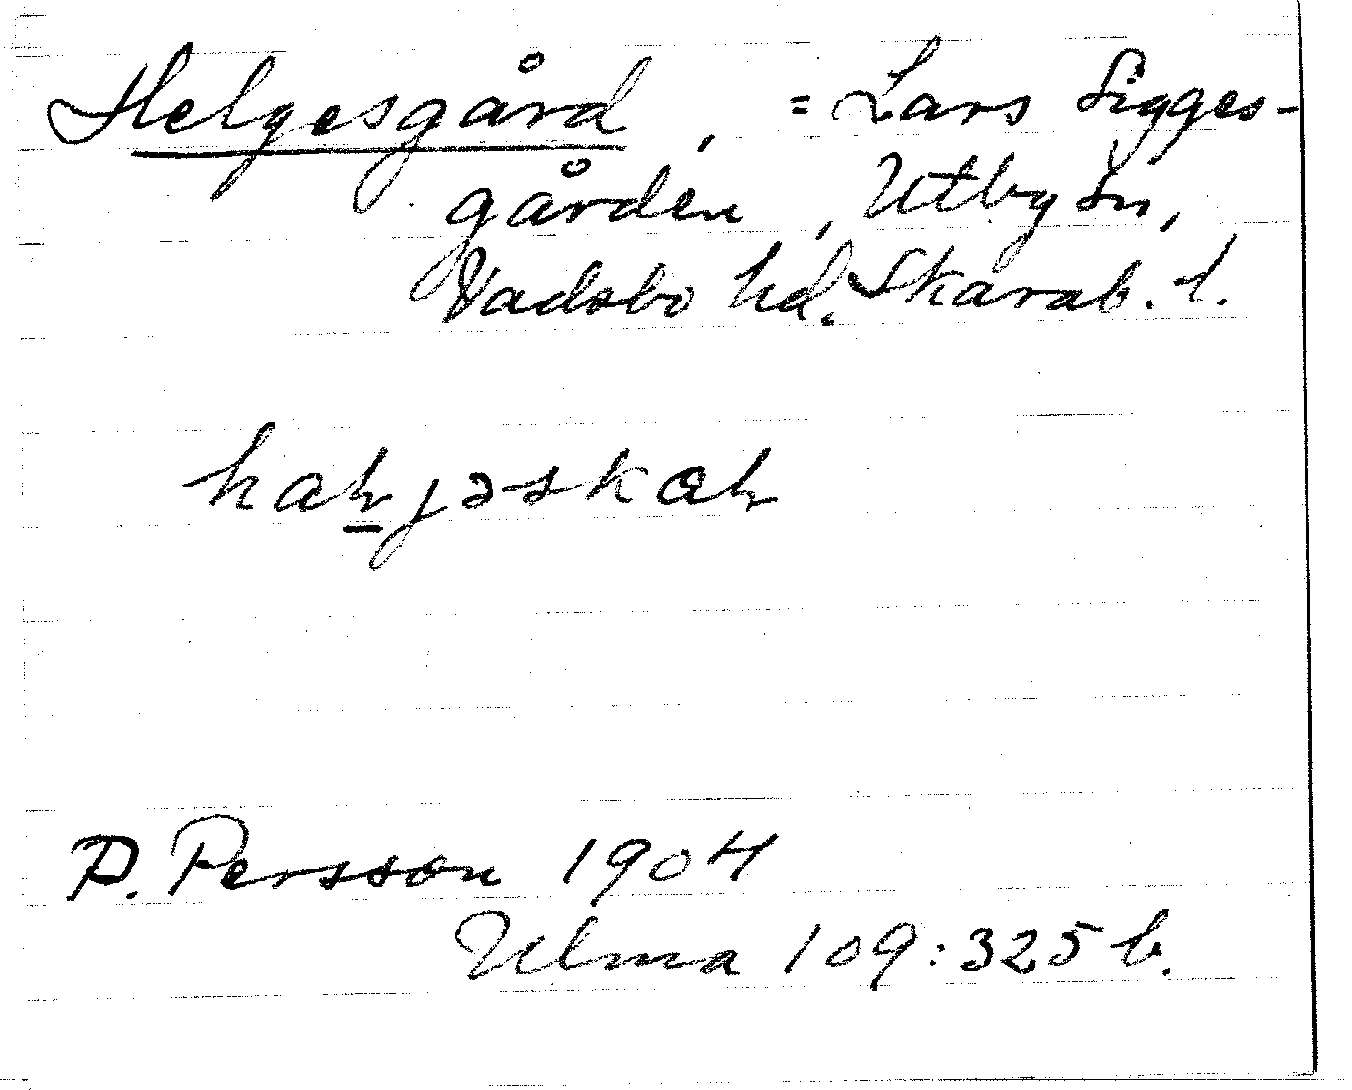 Helgesgård, = Lars Sigges-
gården, Utby sn,
Vadsbo hd. Skarab. l.
P. Persson 1904
Ulma 109:325 b.